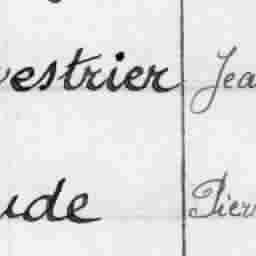 vestrier Jea
ude Pierr